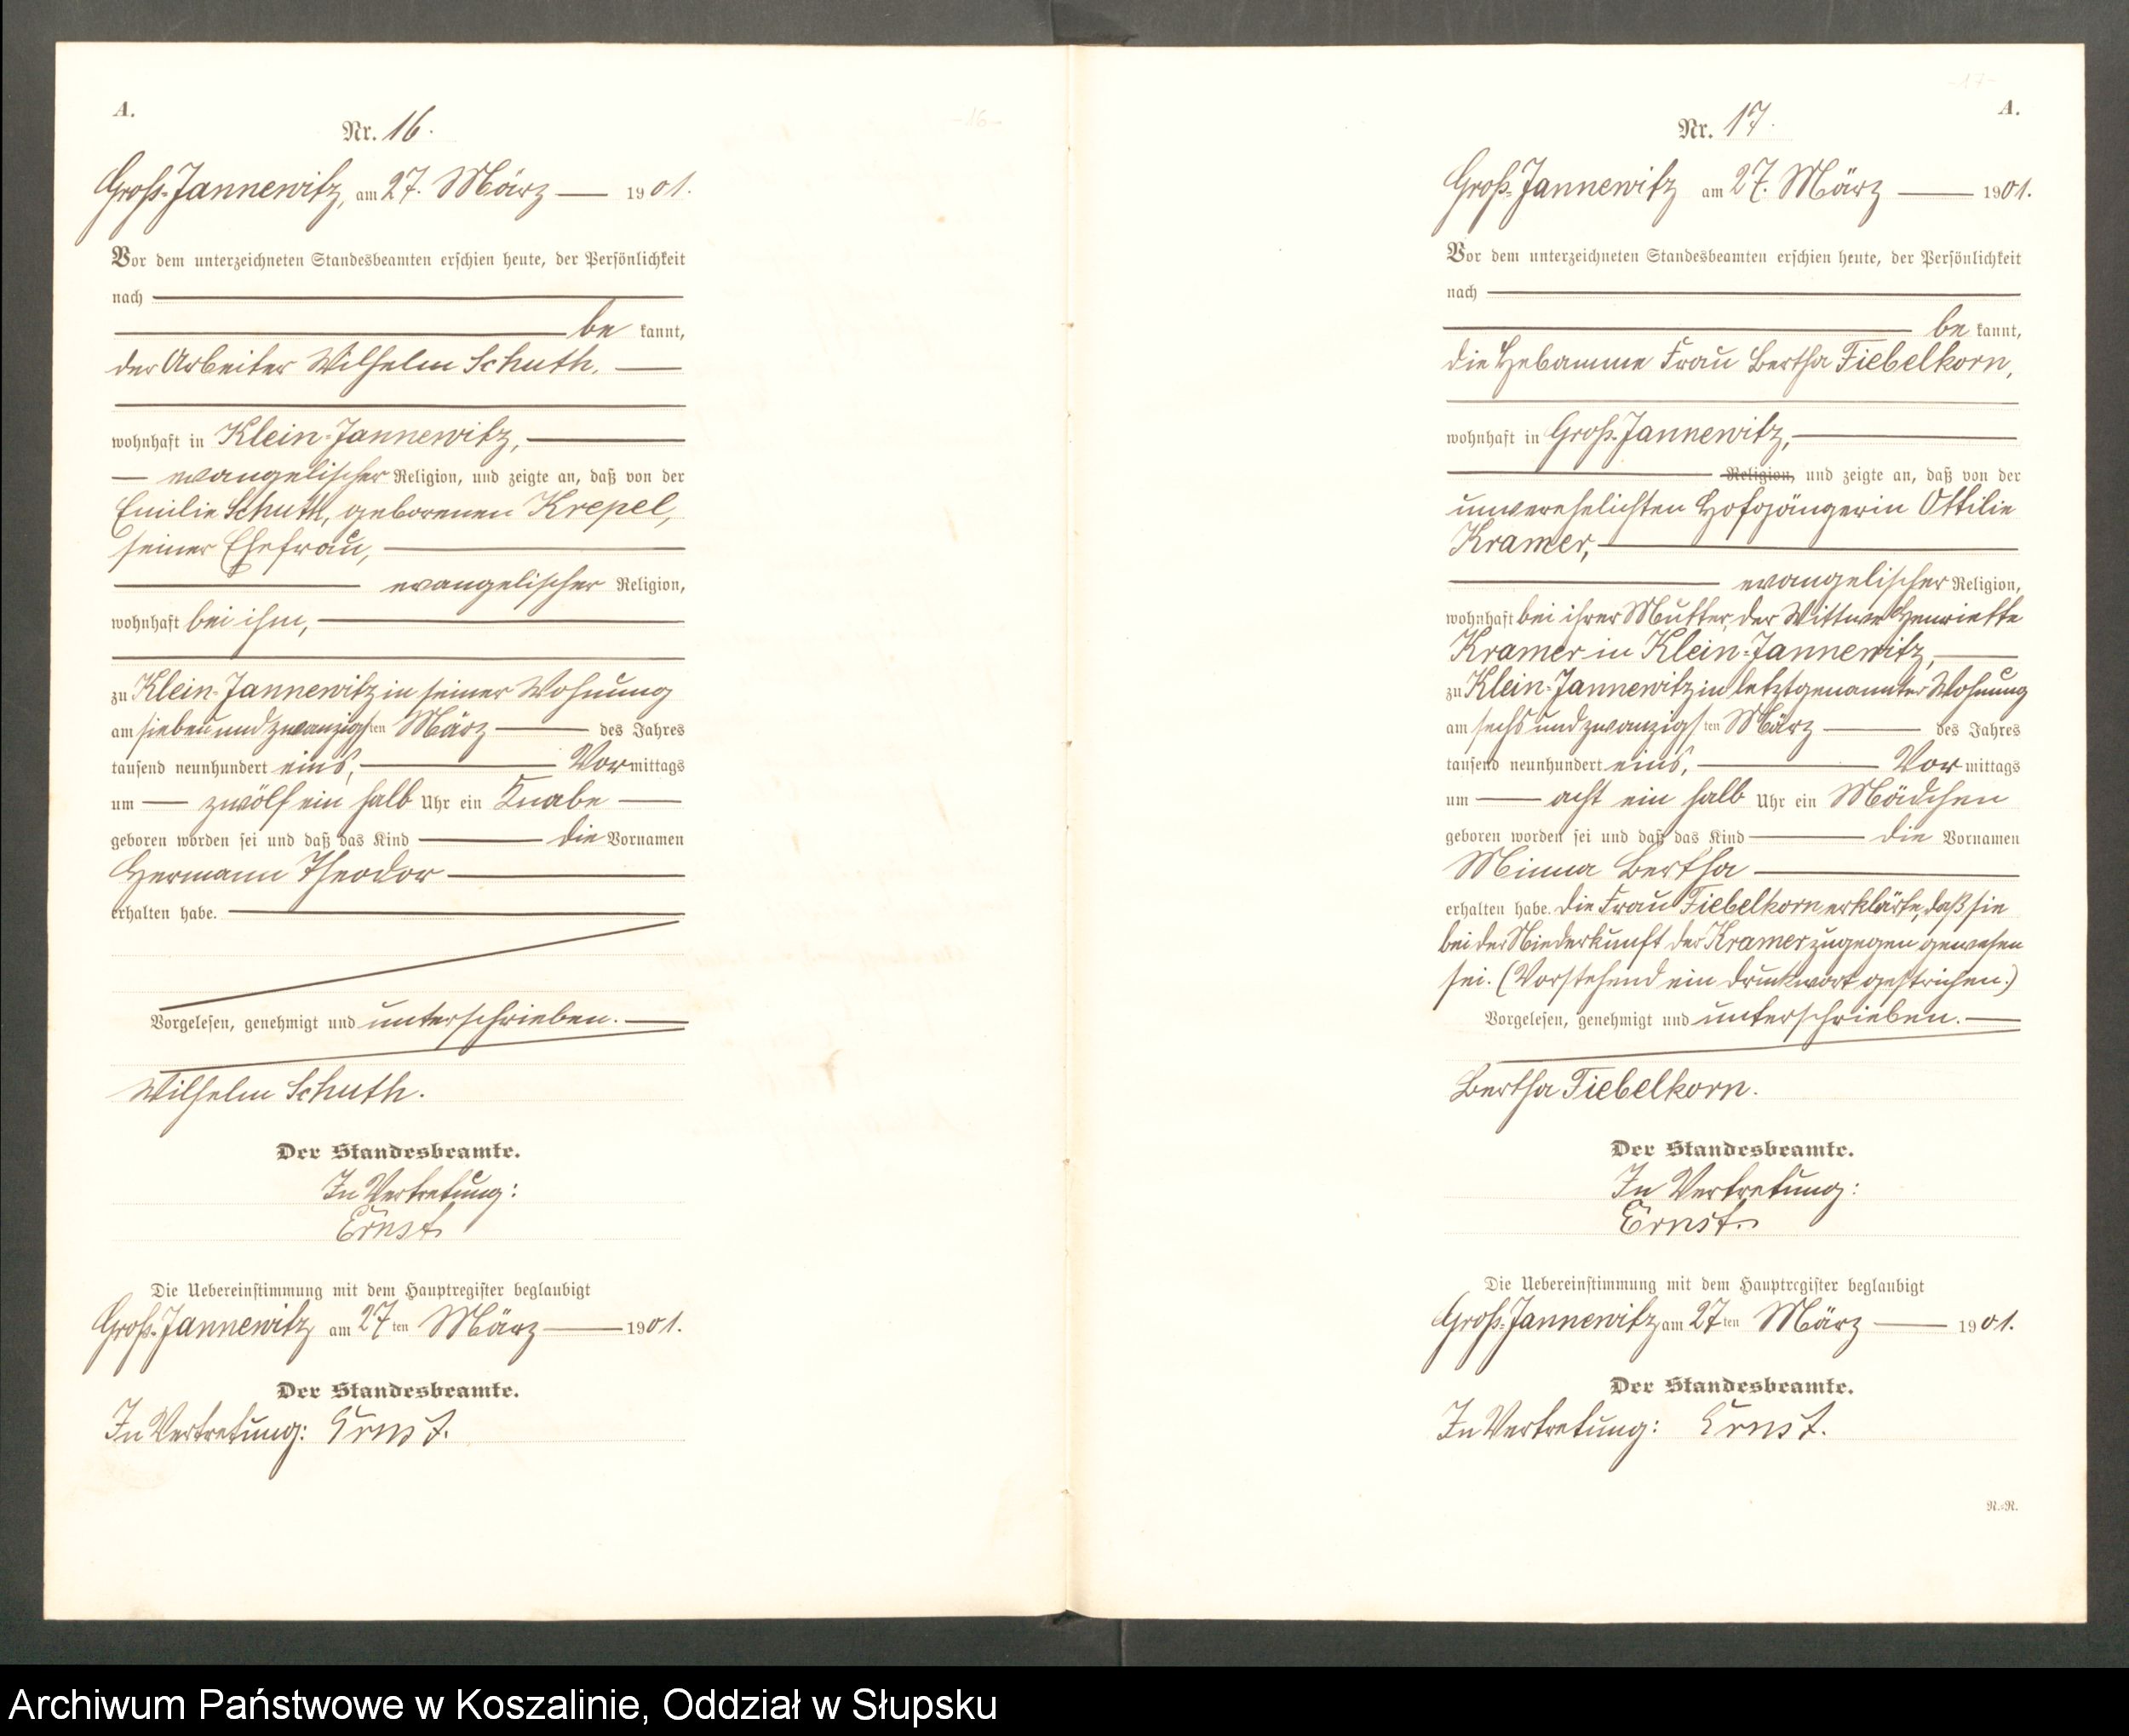 A.
Nr. 16.
Groß-Jannewitz, am 27. März 1901.
Vor dem unterzeichneten Standesbeamten erschien heute, der Persönlichkeit
nach
be kannt,
der Arbeiter Wilhelm Schuth,
wohnhaft in Klein-Jannewitz,
evangelischer Religion, und zeigte an, daß von der
Emilie Schuth, geborenen Krepel,
seiner Ehefrau,
evangelischer Religion,
wohnhaft bei ihm,
zu Klein-Jannewitz in seiner Wohnung
am sieben und zwanzigsten März des Jahres
tausend neunhundert eins, Vormittags
um zwölf ein halb Uhr ein Knabe
geboren worden sei und daß das Kind die Vornamen
Hermann Theodor
erhalten habe.
Vorgelesen, genehmigt und unterschrieben.
Wilhelm Schuth.
Der Standesbeamte.
In Vertretung:
Ernst
Die Uebereinstimmung mit dem Hauptregister beglaubigt
Groß-Jannewitz am 27ten März 1901.
Der Standesbeamte.
In Vertretung: Ernst.
-16-
-17-
A.
Nr. 17.
Groß-Jannewitz am 27. März 1901.
Vor dem unterzeichneten Standesbeamten erschien heute, der Persönlichkeit
nach
be kannt,
die Hebamme Frau Bertha Fiebelkorn,
wohnhaft in Groß-Jannewitz,
Religion, und zeigte an, daß von der
unverehelichten Hofgängerin Ottilie
Kramer,
evangelischer Religion,
wohnhaft bei ihrer Mutter, der Wittwe Henriette
Kramer in Klein-Jannewitz,
zu Klein-Jannewitz in letztgenannter Wohnung
am sechs und zwanzigsten März des Jahres
tausend neunhundert eins, Vormittags
um acht ein halb Uhr ein Mädchen
geboren worden sei und daß das Kind die Vornamen
Minna Bertha
erhalten habe. Die Frau Fiebelkorn erklärte, daß sie
bei der Niederkunft der Kramer zugegen gewesen
sei. (Vorstehend ein Druckwort gestrichen.)
Vorgelesen, genehmigt und unterschrieben.
Bertha Fiebelkorn.
Der Standesbeamte.
In Vertretung:
Ernst.
Die Uebereinstimmung mit dem Hauptregister beglaubigt
Groß-Jannewitz am 27ten März 1901.
Der Standesbeamte.
In Vertretung: Ernst.
N.-R.
Archiwum Państwowe w Koszalinie, Oddział w Słupsku